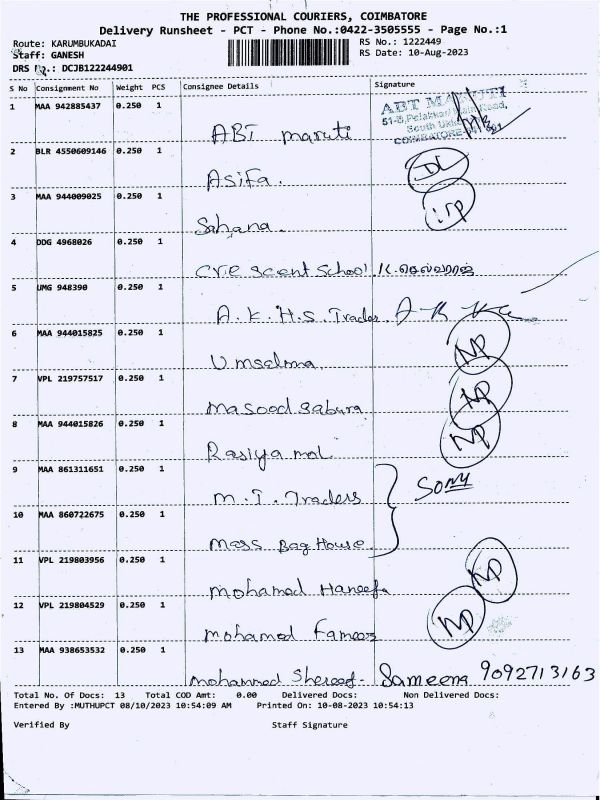 THE PROFESSIONAL COURIERS, COIMBATORE
Delivery Runsheet - PCT - Phone No.:0422-3505555 - Page No.:1
Route: KARUMBUKADAI
RS No.: 1222449
Staff: GANESH
RS Date: 10-Aug-2023
DRS No.: DCJB122244901
S No Consignment No Weight PCS Consignee Details Signature
1 MAA 942885437 0.250 1 ABT maruti
ABT MARUTI
51-B, Palakkad Main Road,
South Ukkadam
COIMBATORE
2 BLR 4550609146 0.250 1 Asifa. DL
3 MAA 944009025 0.250 1 Sahana.
4 DDG 4968026 0.250 1 crescent School K.செல்வராஜ்
5 UMG 948390 0.250 1 A.K.H.S. Trades.
6 MAA 944015825 0.250 1 Umsalma. NP
7 VPL 219757517 0.250 1 masood sabura NP
8 MAA 944015826 0.250 1 Rasiya mol. NP
9 MAA 861311651 0.250 1 M.T. Traders
10 MAA 860722675 0.250 1 Mass Bag House
11 VPL 219803956 0.250 1 mohamed Haneefa NP
12 VPL 219804529 0.250 1 mohamed Fameez NP
13 MAA 938653532 0.250 1 mohammed Shereef. Sameema 9092713163
Total No. Of Docs: 13 Total COD Amt: 0.00 Delivered Docs: Non Delivered Docs:
Entered By :MUTHUPCT 08/10/2023 10:54:09 AM Printed On: 10-08-2023 10:54:13
Verified By Staff Signature